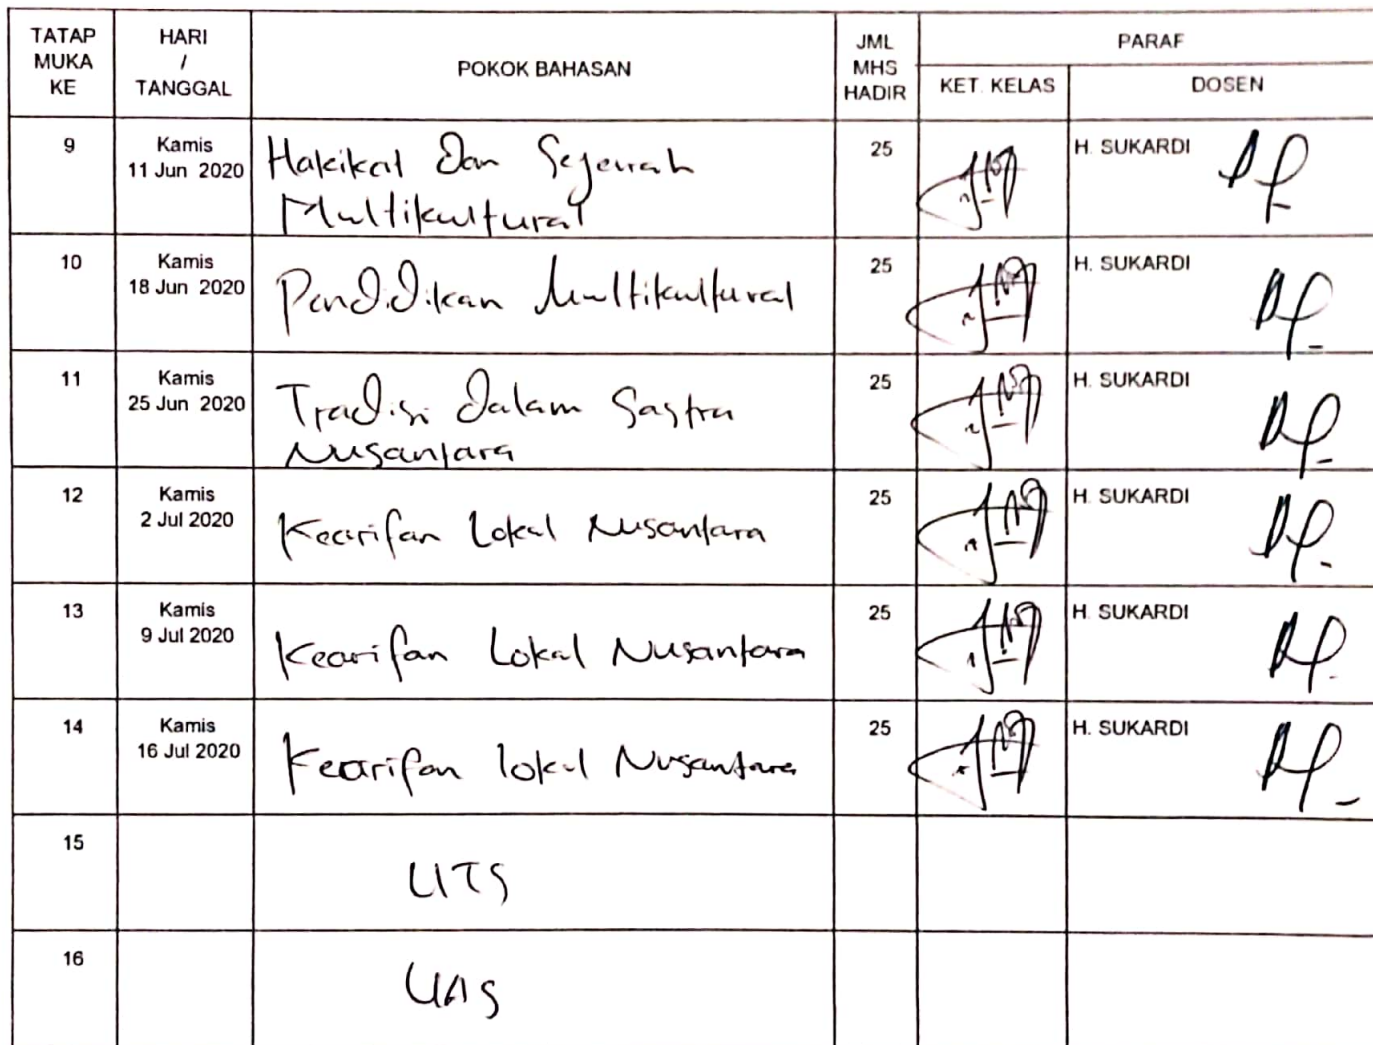 TATAP MUKA KE
HARI / TANGGAL
POKOK BAHASAN
JML MHS HADIR
PARAF
KET. KELAS
DOSEN
9
Kamis
11 Jun 2020
Hakikat Dan Sejarah
Multikultural
25
H. SUKARDI
10
Kamis
18 Jun 2020
Pendidikan Multikultural
25
H. SUKARDI
11
Kamis
25 Jun 2020
Tradisi dalam Sastra
Nusantara
25
H. SUKARDI
12
Kamis
2 Jul 2020
Kearifan Lokal Nusantara
25
H. SUKARDI
13
Kamis
9 Jul 2020
Kearifan Lokal Nusantara
25
H. SUKARDI
14
Kamis
16 Jul 2020
Kearifan lokal Nusantara
25
H. SUKARDI
15
UTS
16
UAS